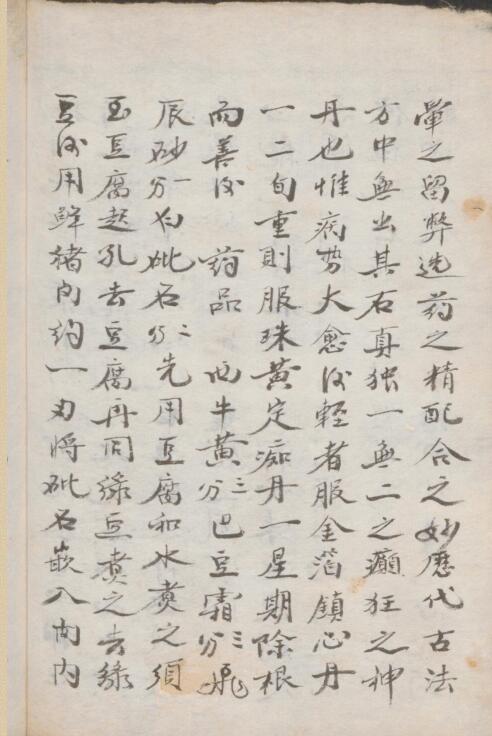 單之留弊选药之精配合之妙歷代古法
方中無出其右真独一無二之癲狂之神
丹也惟病势大愈后輕者服金箔鎮心丹
一二旬重則服珠黄定痴丹一星期除根
而善后 药品 西牛黄三分巴豆霜三分飛
辰砂一分白砒石二分先用豆腐和水煑之須
至豆腐起孔去豆腐再同綠豆煑之去綠
豆后用鲜豬肉約一刃將砒石嵌入肉内